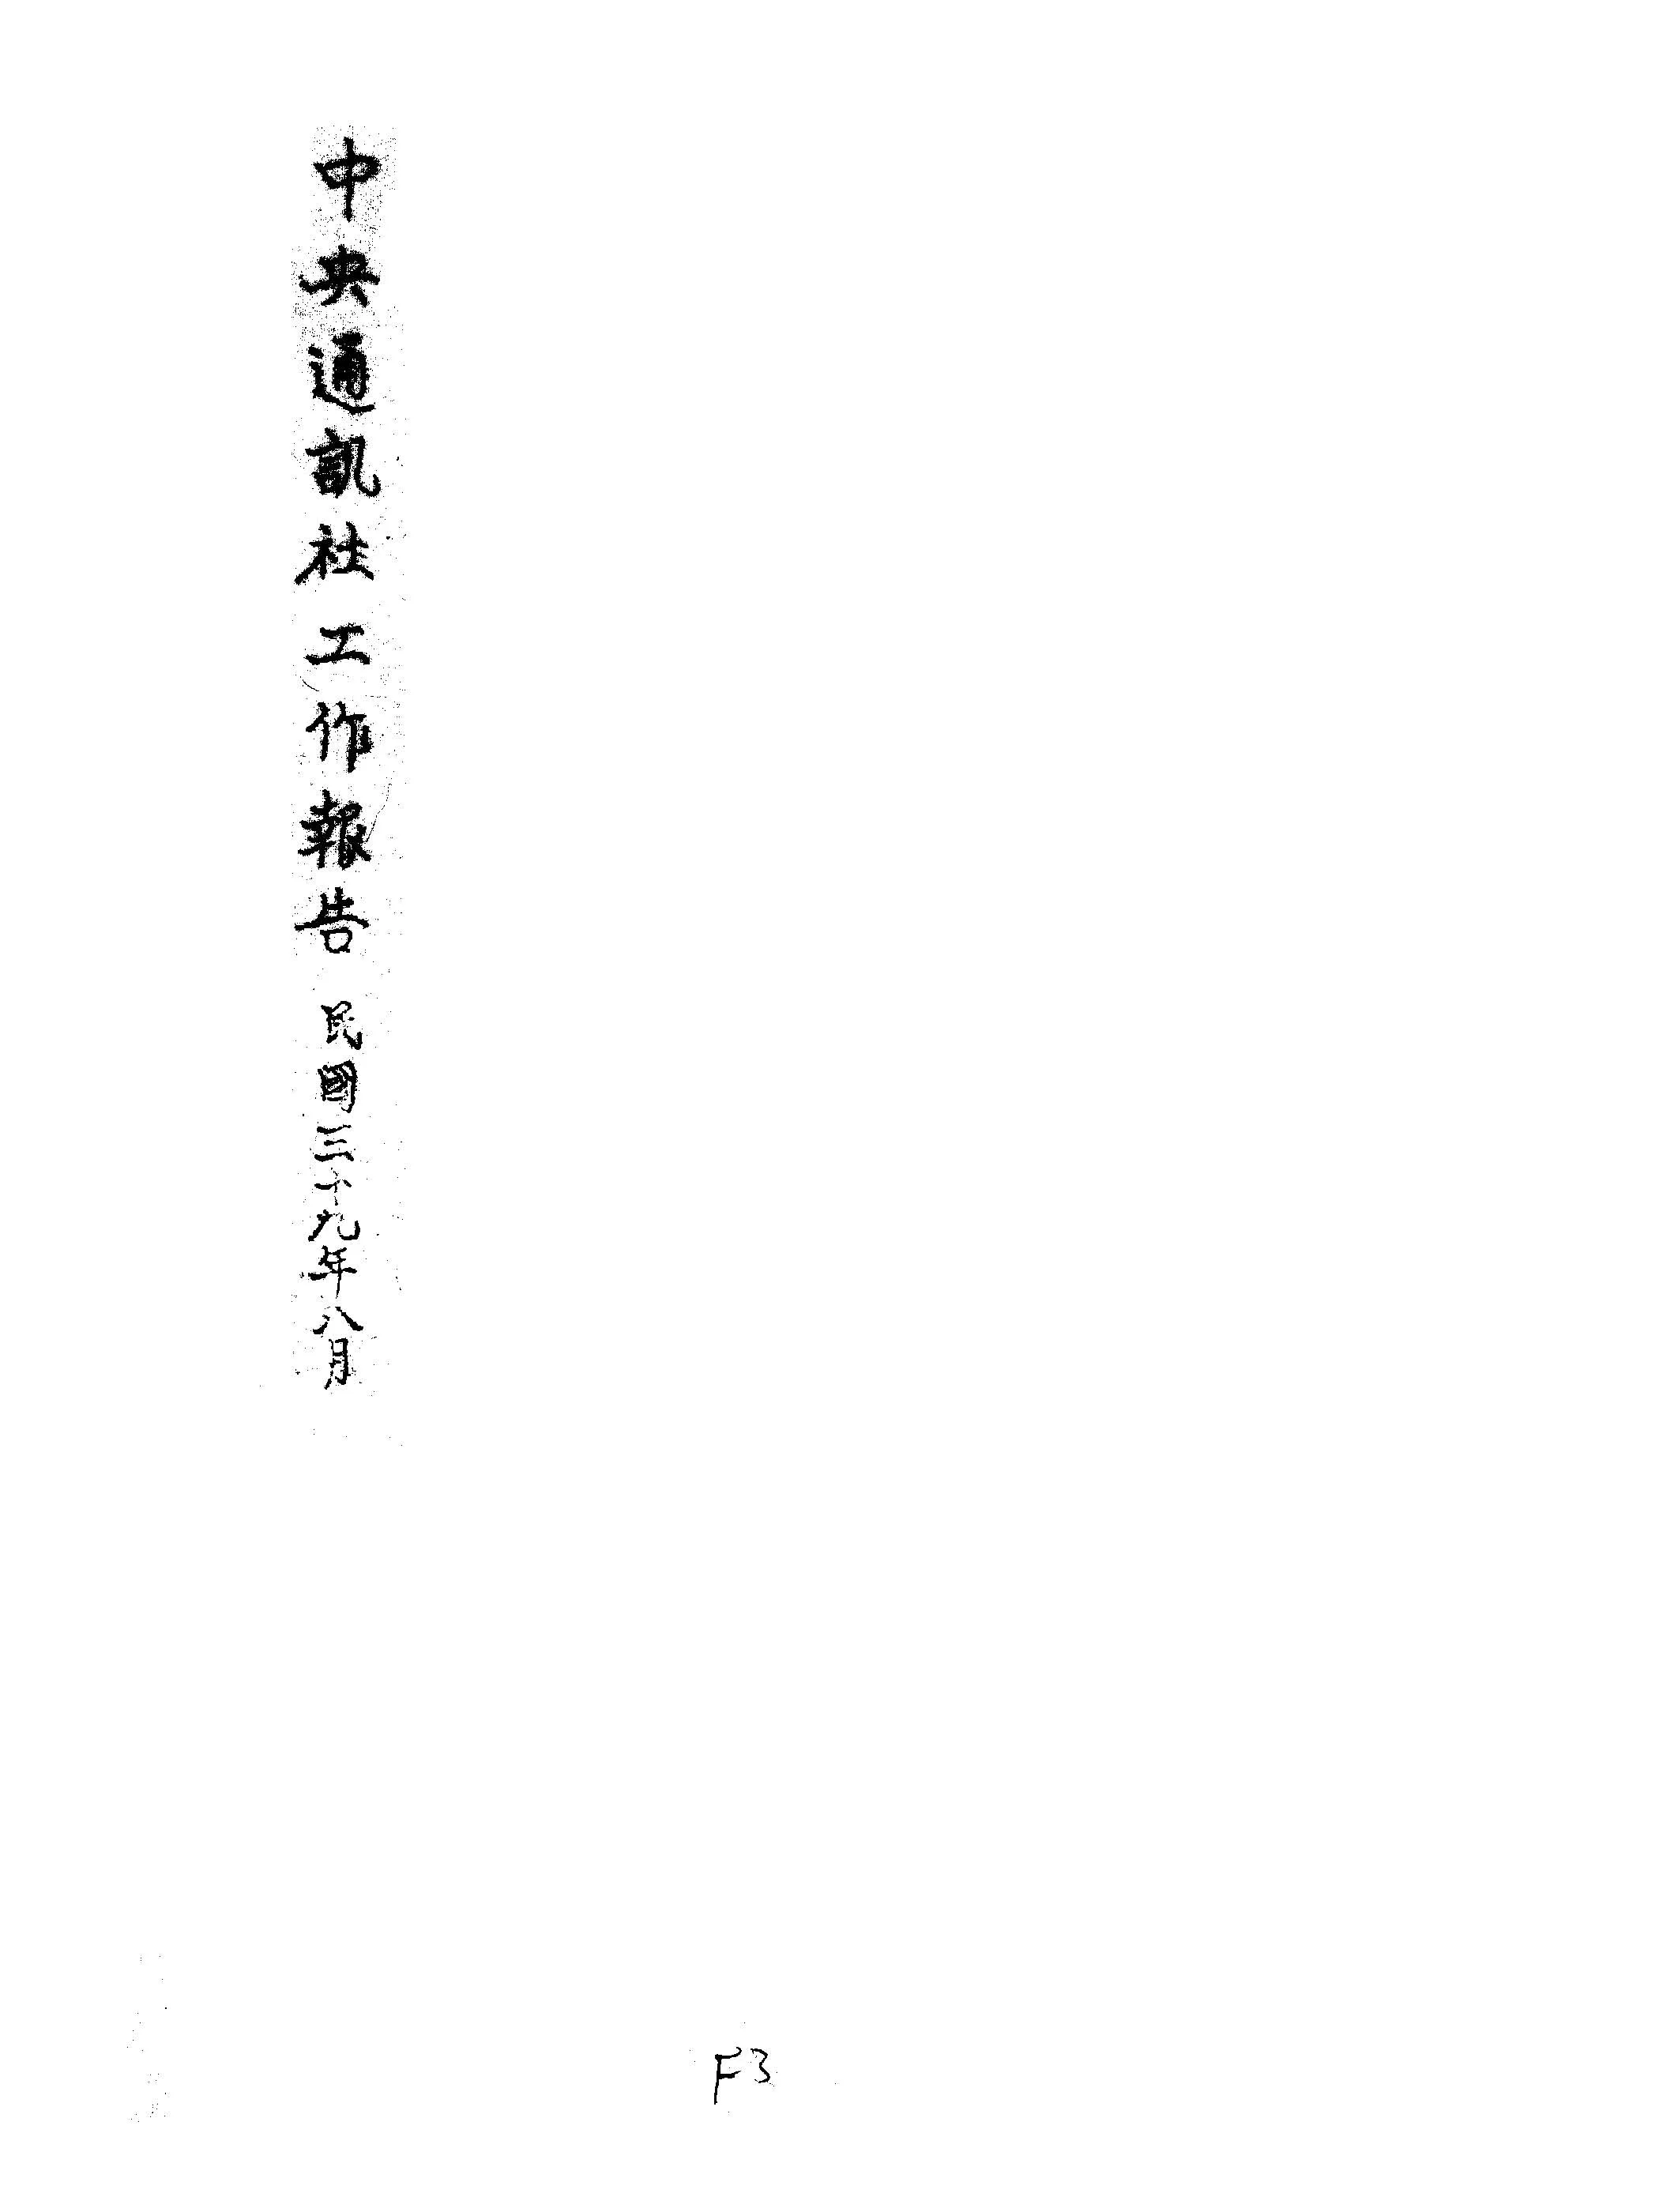 中央通訊社工作報告 民國三十九年八月
F3